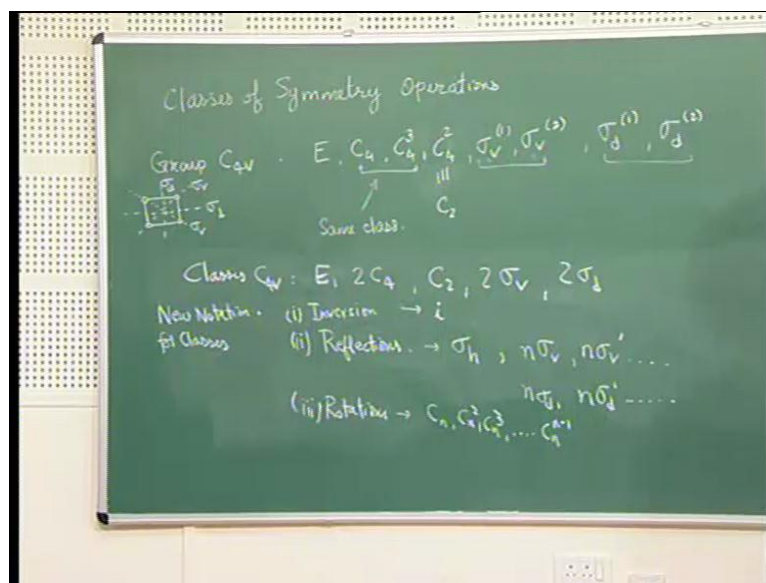 Classes of Symmetry Operations
Group C₄ᵥ . E, C₄, C₄³, C₄², σᵥ⁽¹⁾, σᵥ⁽²⁾, σ_d⁽¹⁾, σ_d⁽²⁾
σ_d σᵥ
≡
σ_d
C₂
σᵥ
Same class.
Classes C₄ᵥ : E, 2C₄, C₂, 2σᵥ, 2σ_d
New Notation. (i) Inversion → i
for Classes (ii) Reflections. → σₕ, nσᵥ, nσᵥ'....
nσ_d, nσ_d'.....
(iii) Rotations → Cₙ, Cₙ², Cₙ³, .... Cₙⁿ⁻¹